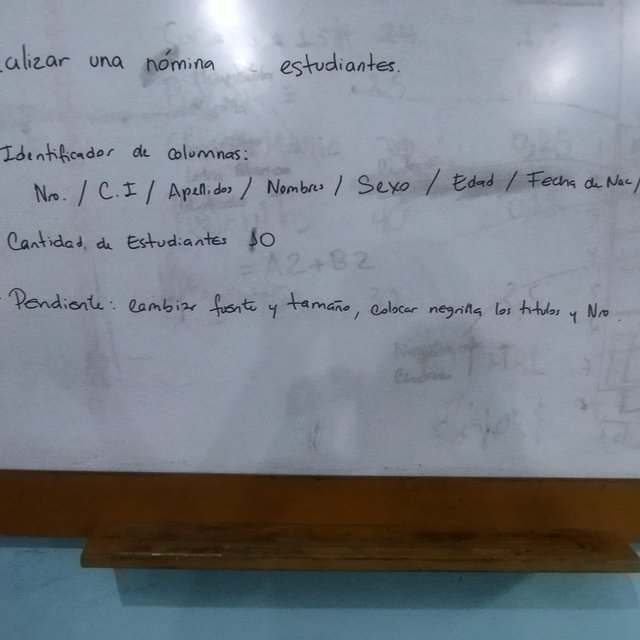 alizar una nómina estudiantes.
Identificador de columnas:
Nro. / C.I / Apellidos / Nombres / Sexo / Edad / Fecha de Nac /
Cantidad de Estudiantes 10
= A2 + B2
Pendiente: Cambiar fuente y tamaño, colocar negrilla los titulos y Nro.